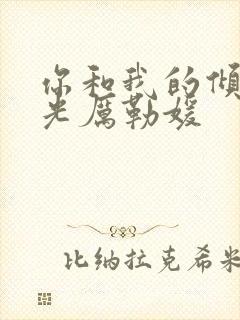 你和我的倾
光厲勒媛
比纳拉克希米